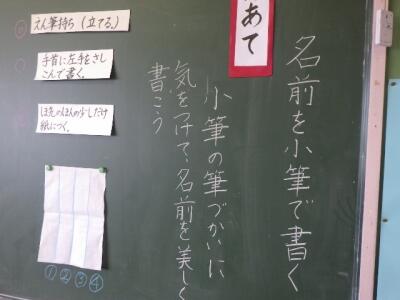 名前を小筆で書く
あて
小筆の筆づかいに
気をつけて、名前を美しく
書こう
えん筆持ち（立てる）
手首に左手をさし
こんで書く。
ほ先のほんの少しだけ
紙につく。
① ② ③ ④